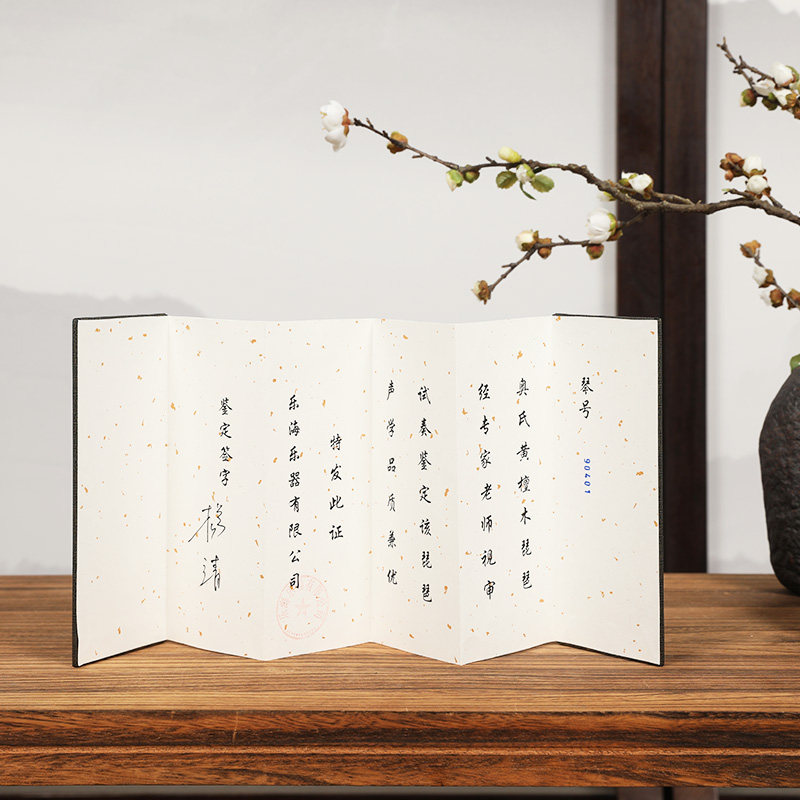 琴号 90401
奥氏黄檀木琵琶
经专家老师视审
试奏鉴定该琵琶
声学品质兼优
特发此证
乐海乐器有限公司
鉴定签字